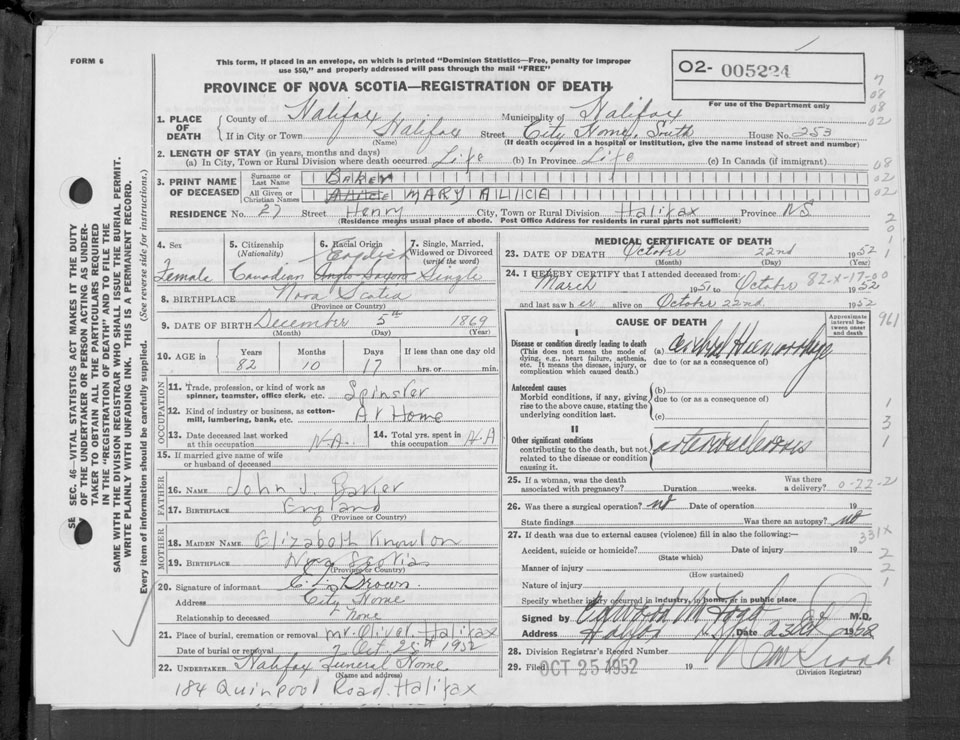 FORM 6
This form, if placed in an envelope, on which is printed "Dominion Statistics—Free, penalty for improper
use $50," and properly addressed will pass through the mail "FREE"
PROVINCE OF NOVA SCOTIA—REGISTRATION OF DEATH
02- 005224
For use of the Department only
1. PLACE OF DEATH
County of Halifax Municipality of Halifax
If in City or Town Halifax Street City Home, South House No. 253
(Name) (If death occurred in a hospital or institution, give the name instead of street and number)
2. LENGTH OF STAY (in years, months and days)
(a) In City, Town or Rural Division where death occurred Life (b) In Province Life (c) In Canada (if immigrant)
3. PRINT NAME OF DECEASED
Surname or Last Name BAKER
All Given or Christian Names MARY ALICE
RESIDENCE No. 27 Street Henry City, Town or Rural Division Halifax Province NS
(Residence means usual place of abode. Post Office Address for residents in rural parts not sufficient)
4. Sex 5. Citizenship (Nationality) 6. Racial Origin 7. Single, Married, Widowed or Divorced (write the word)
English
Female Canadian Anglo Saxon Single
8. BIRTHPLACE Nova Scotia
(Province or Country)
9. DATE OF BIRTH December 5th 1869
(Month) (Day) (Year)
10. AGE in Years Months Days If less than one day old
82 10 17 hrs. or min.
OCCUPATION
11. Trade, profession, or kind of work as spinner, teamster, office clerk, etc. Spinster
12. Kind of industry or business, as cotton-mill, lumbering, bank, etc. At Home
13. Date deceased last worked at this occupation N.A. 14. Total yrs. spent in this occupation N.A
15. If married give name of wife or husband of deceased
FATHER
16. NAME John J. Baker
17. BIRTHPLACE England
(Province or Country)
MOTHER
18. MAIDEN NAME Elizabeth Knowlon
19. BIRTHPLACE Nova Scotia
(Province or Country)
20. Signature of informant Brown.
Address City Home
Relationship to deceased None
21. Place of burial, cremation or removal Mt. Olivet. Halifax
Date of burial or removal Oct. 25th 1952
22. UNDERTAKER Halifax Funeral Home
(Name and address)
184 Quinpool Road. Halifax
MEDICAL CERTIFICATE OF DEATH
23. DATE OF DEATH October 22nd 1952
(Month) (Day)
24. I HEREBY CERTIFY that I attended deceased from:
March 1951 to October 1952
82-x-17-00
and last saw her alive on October 22nd 1952
CAUSE OF DEATH
Approximate interval between onset and death
I
Disease or condition directly leading to death
(This does not mean the mode of dying, e.g., heart failure, asthenia, etc. It means the disease, injury, or complication which caused death.)
(a) Cerebral Haemorrhage
due to (or as a consequence of)
Antecedent causes
Morbid conditions, if any, giving rise to the above cause, stating the underlying condition last.
(b)
due to (or as a consequence of)
(c)
II
Other significant conditions
contributing to the death, but not related to the disease or condition causing it.
arteriosclerosis
25. If a woman, was the death associated with pregnancy? Duration weeks. Was there a delivery?
0-22-2
26. Was there a surgical operation? no Date of operation 19
State findings Was there an autopsy? no
27. If death was due to external causes (violence) fill in also the following:—
331X
Accident, suicide or homicide? Date of injury 19
(State which)
Manner of injury
(How sustained)
Nature of injury
Specify whether injury occurred in industry, in home, or in public place
Signed by M.D.
Address Halifax N.S. Date 23 Oct 1952
28. Division Registrar's Record Number
29. Filed OCT 25 1952 19
(Division Registrar)
SEC. 46—VITAL STATISTICS ACT MAKES IT THE DUTY
OF THE UNDERTAKER OR PERSON ACTING AS UNDER-
TAKER TO OBTAIN ALL THE PARTICULARS REQUIRED
IN THE "REGISTRATION OF DEATH" AND TO FILE THE
SAME WITH THE DIVISION REGISTRAR WHO SHALL ISSUE THE BURIAL PERMIT.
WRITE PLAINLY WITH UNFADING INK. THIS IS A PERMANENT RECORD.
Every item of information should be carefully supplied. (See reverse side for instructions.)
7
08
08
02
08
02
02
2
0
1
1
961
1
3
1
2
2
1